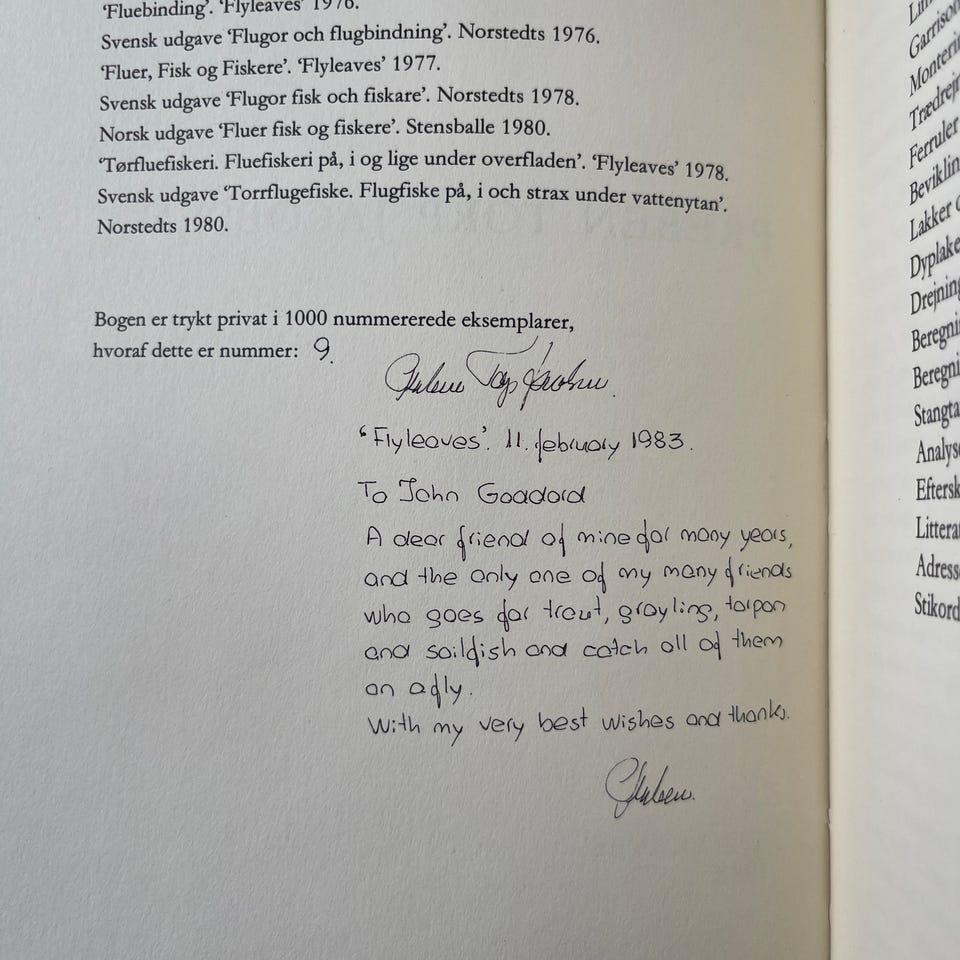 'Fluebinding'. 'Flyleaves' 1976.
Svensk udgave 'Flugor och flugbindning'. Norstedts 1976.
'Fluer, Fisk og Fiskere'. 'Flyleaves' 1977.
Svensk udgave 'Flugor fisk och fiskare'. Norstedts 1978.
Norsk udgave 'Fluer fisk og fiskere'. Stensballe 1980.
'Tørfluefiskeri. Fluefiskeri på, i og lige under overfladen'. 'Flyleaves' 1978.
Svensk udgave 'Torrflugefiske. Flugfiske på, i och strax under vattenytan'.
Norstedts 1980.
Bogen er trykt privat i 1000 nummererede eksemplarer,
hvoraf dette er nummer: 9.
'Flyleaves'. 11. february 1983.
To John Goddard
A dear friend of mine for many years,
and the only one of my many friends
who goes for trout, grayling, tarpon
and sailfish and catch all of them
on a fly.
With my very best wishes and thanks.
Garrison
Monterin
Trædrejn
Ferruler
Beviklin
Lakker
Dyplake
Drejning
Beregni
Beregni
Stangta
Analyse
Eftersk
Littera
Adresse
Stikord